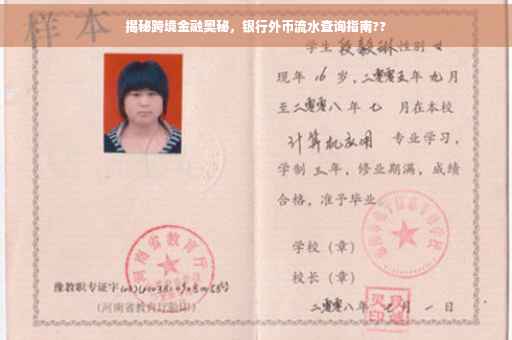 揭秘跨境金融奥秘，银行外币流水查询指南??
样本
学生 段毅琳 性别 女
现年 16 岁，二零零五年 九 月
至二零零八年 七 月在本校
计算机应用 专业学习，
学制 三 年，修业期满，成绩
合格，准予毕业。
学校（章）
校长（章）
二零零八年 七 月 一 日
河南省教育厅
豫教职专证字
（河南省教育厅验印）